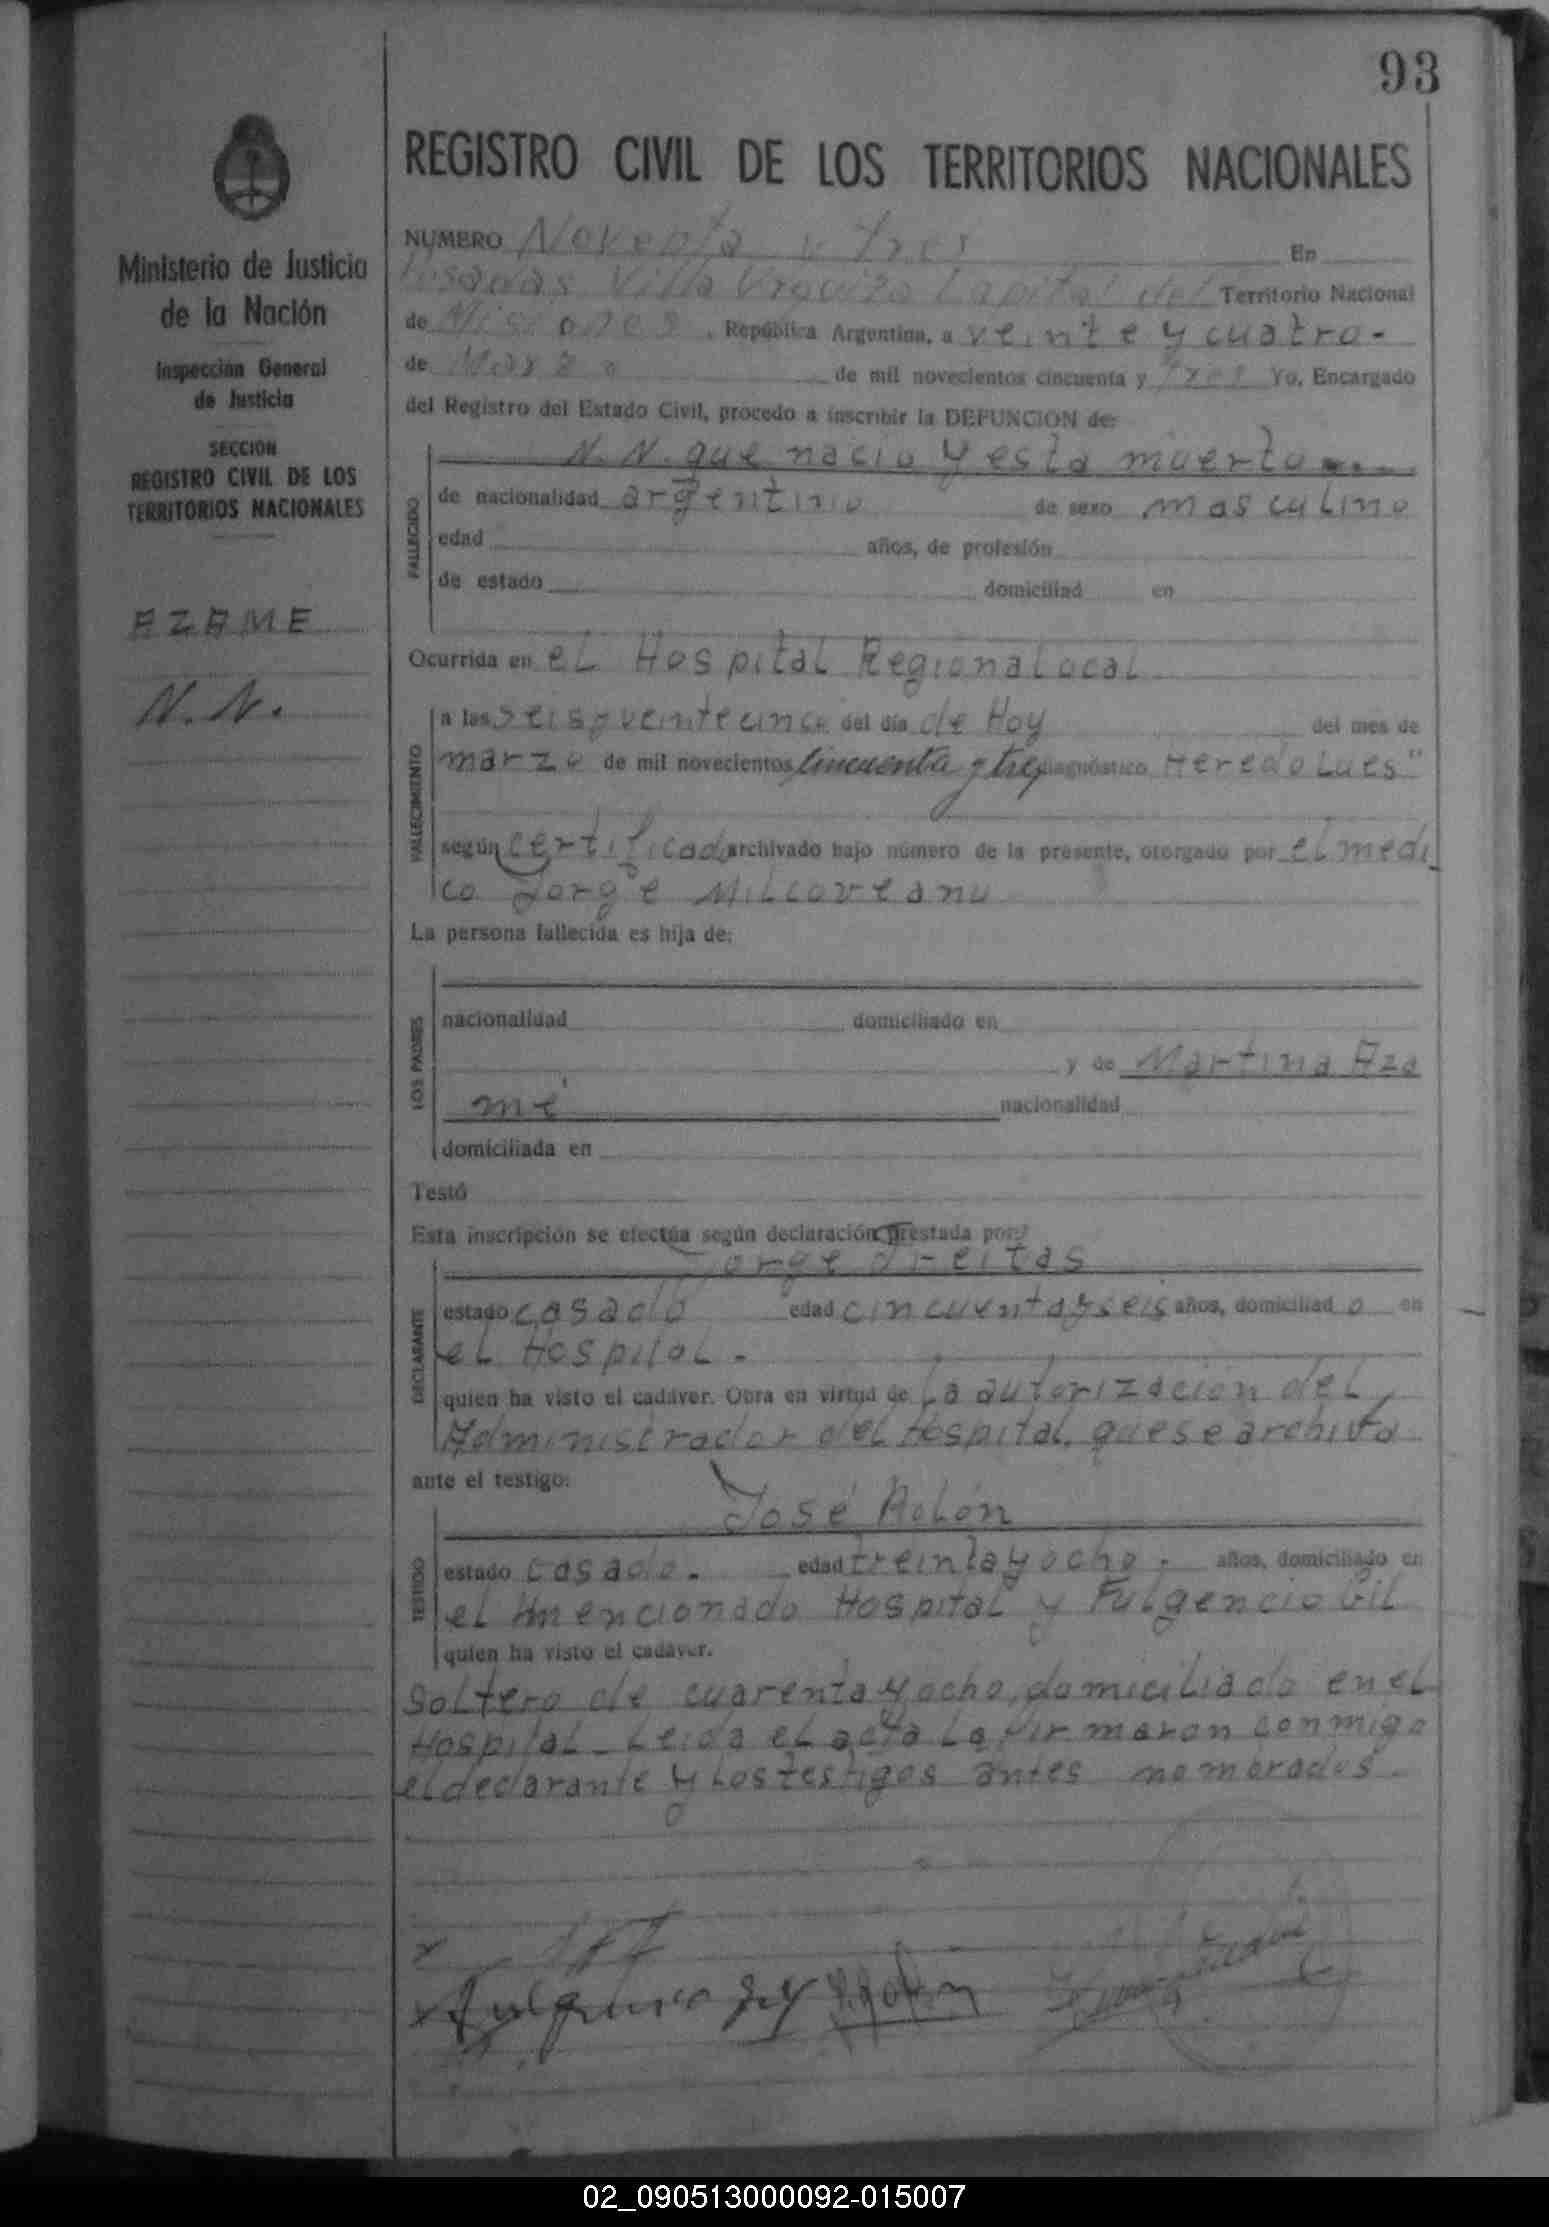 93
REGISTRO CIVIL DE LOS TERRITORIOS NACIONALES
Ministerio de Justicia
de la Nación
Inspección General
de Justicia
SECCION
REGISTRO CIVIL DE LOS
TERRITORIOS NACIONALES
AZAME
N.N.
NUMERO Noventa y tres En
Posadas Villa Urquiza Capital del Territorio Nacional
de Misiones, República Argentina, a veinte y cuatro-
de Marzo de mil novecientos cincuenta y tres Yo, Encargado
del Registro del Estado Civil, procedo a inscribir la DEFUNCION de:
FALLECIDO
N. N. que nacio y esta muerto
de nacionalidad argentino de sexo masculino
edad años, de profesión
de estado domiciliad en
Ocurrida en eL Hospital Regional Local
FALLECIMIENTO
a las seis y veinte cinco del día de Hoy del mes de
marzo de mil novecientos cincuenta y tres diagnóstico Heredo Lues"
según certificado archivado bajo número de la presente, otorgado por el medi
co Jorge Milcoveanu
La persona fallecida es hija de:
LOS PADRES
nacionalidad domiciliado en
y de Martina Aza
mé nacionalidad
domiciliada en
Testó
Esta inscripción se efectúa según declaración prestada por:
DECLARANTE
Jorge
estado casado edad cincuenta y seis años, domiciliad o en
eL Hospital.
quien ha visto el cadáver. Obra en virtud de La autorización del
Administrador del Hospital, que se archiva
ante el testigo:
TESTIGO
José Rolón
estado casado. edad treinta y ocho. años, domiciliado en
el mencionado Hospital y Fulgencio Gil
quien ha visto el cadáver.
Soltero de cuarenta y ocho, domiciliado en el
Hospital_ Leida el acta La firmaron conmigo
el declarante y Los testigos antes nombrados.
Fulgencio Gil
02_090513000092-015007